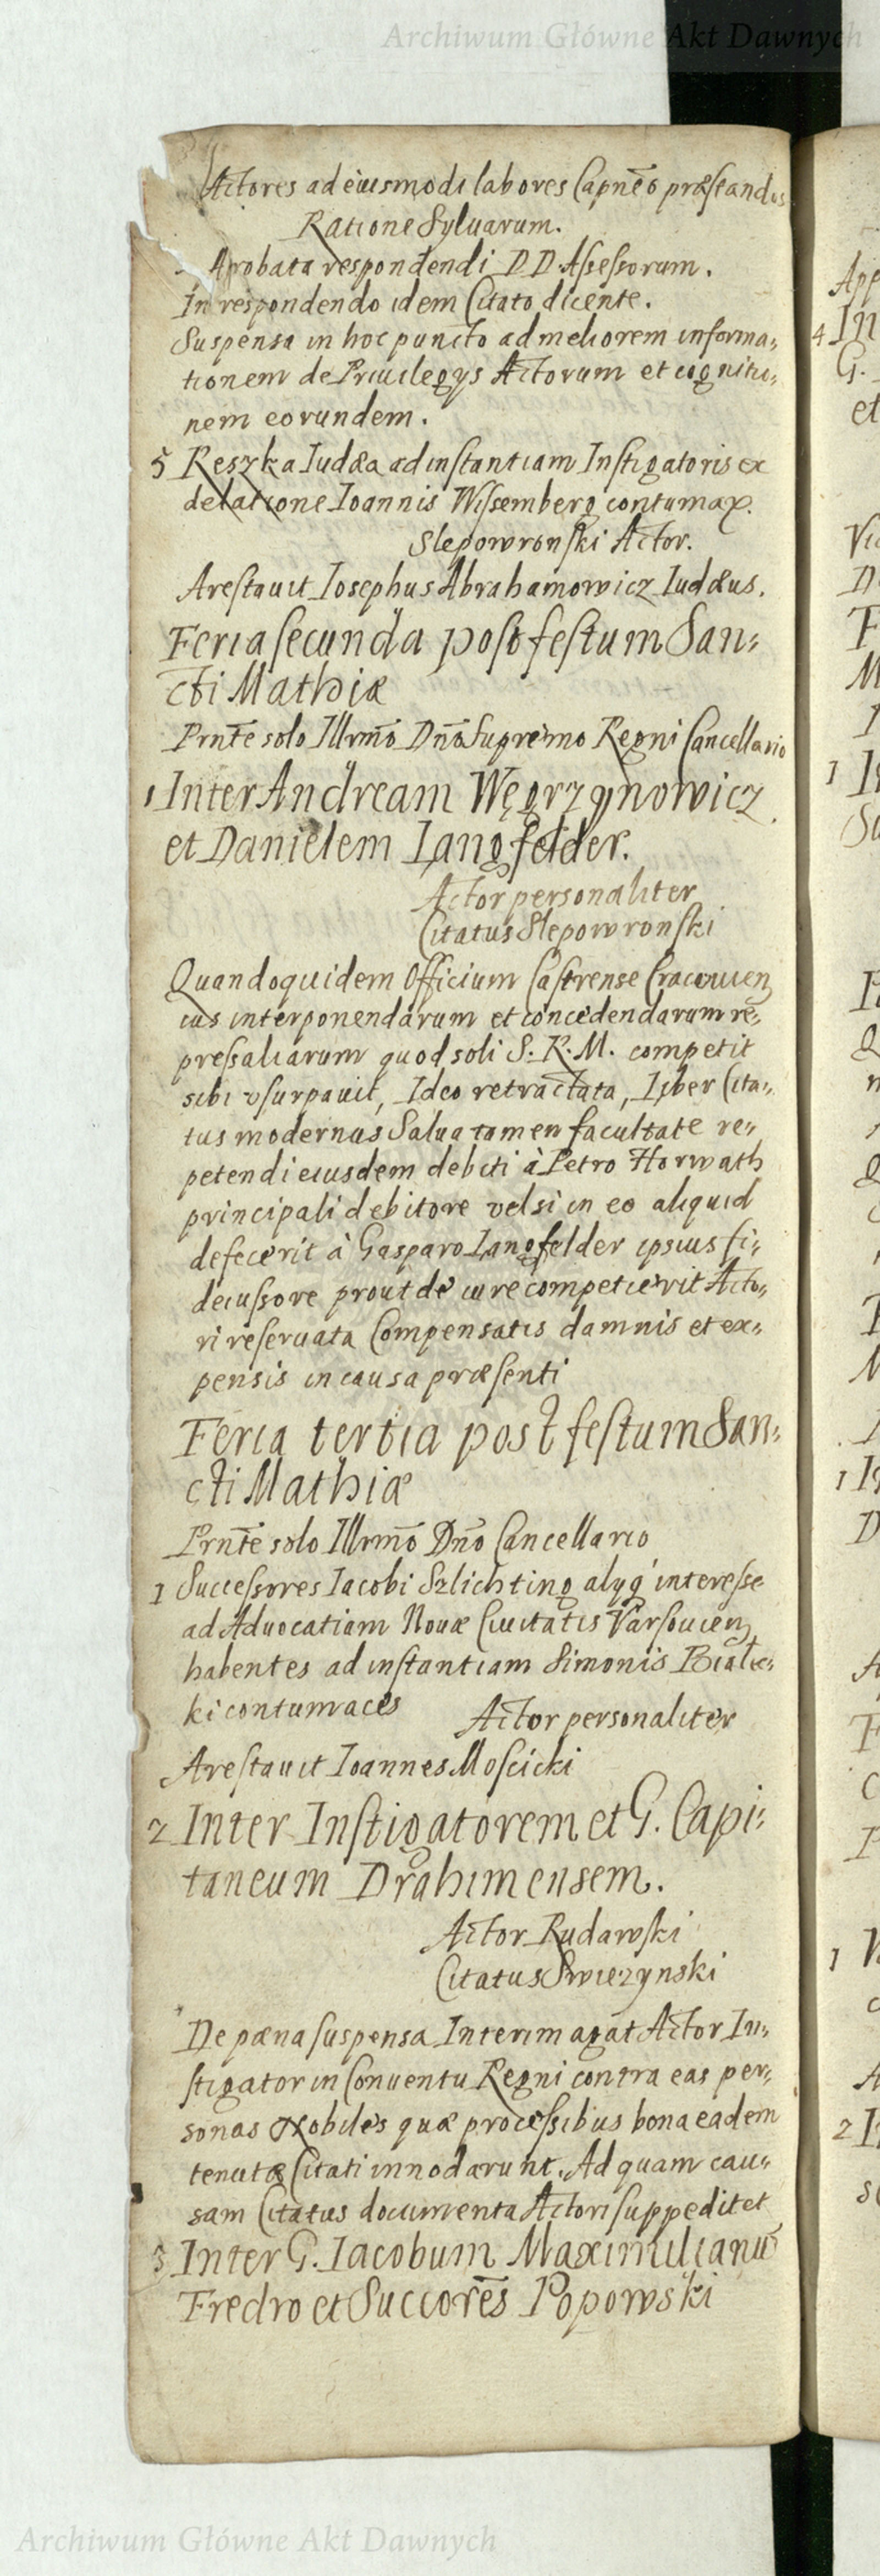 Archiwum Główne Akt Dawnych
Actores ad eiusmodi labores Capnēo præstandos
Ratione Syluarum.
Aprobata respondendi DD Assessorum.
In respondendo idem Citato dicente.
Suspensa in hoc puncto ad meliorem informa⸗
tionem de Priuilegys Actorum et cognitio⸗
nem eorundem.
5 Reszka Iudæa ad instantiam Instigatoris ex
delatione Ioannis Wissemberg contumax.
Slepowronski Actor.
Arestauit Iosephus Abrahamowicz Iudæus.
Feria secunda post festum San⸗
cti Mathiæ
Prnte solo Illrmō Dnō Supremo Regni Cancellario
1 Inter Andream Węgrzynowicz
et Danielem Langfelder.
Actor personaliter
Citatus Slepowronski
Quandoquidem Officium Castrense Cracouien
ius interponendarum et concedendarum re⸗
pressaliarum quod soli S. R. M. competit
sibi vsurpauit, Ideo retractata, Liber Cita⸗
tus modernus Salua tamen facultate re⸗
petendi eiusdem debiti à Petro Horwath
principali debitore vel si in eo aliquid
defecerit à Gasparo Langfelder ipsius fi⸗
deiussore prout de iure competierit Acto⸗
ri reseruata Compensatis damnis et ex⸗
pensis in causa præsenti
Feria tertia post festum San⸗
cti Mathiæ
Prnte solo Illrmō Dnō Cancellario
1 Successores Iacobi Szlichting alyq interesse
ad Aduocatiam Nouæ Ciuitatis Varsouien
habentes ad instantiam Simonis Bialec⸗
ki contumaces Actor personaliter
Arestauit Ioannes Moscicki
2 Inter Instigatorem et G. Capi⸗
taneum Drahimensem.
Actor Rudawski
Citatus Swiezynski
De pæna suspensa Interim agat Actor In⸗
stigator in Conuentu Regni contra eas per⸗
sonas Nobiles quæ processibus bona eadem
tenutæ Citati innodarunt. Ad quam cau⸗
sam Citatus documenta Actori suppeditet
3 Inter G. Iacobum Maximilianū
Fredro et Succorēs Popowski
Archiwum Główne Akt Dawnych